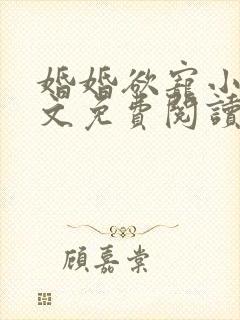 婚婚欲寵小
文免費閱讀
顧嘉棠